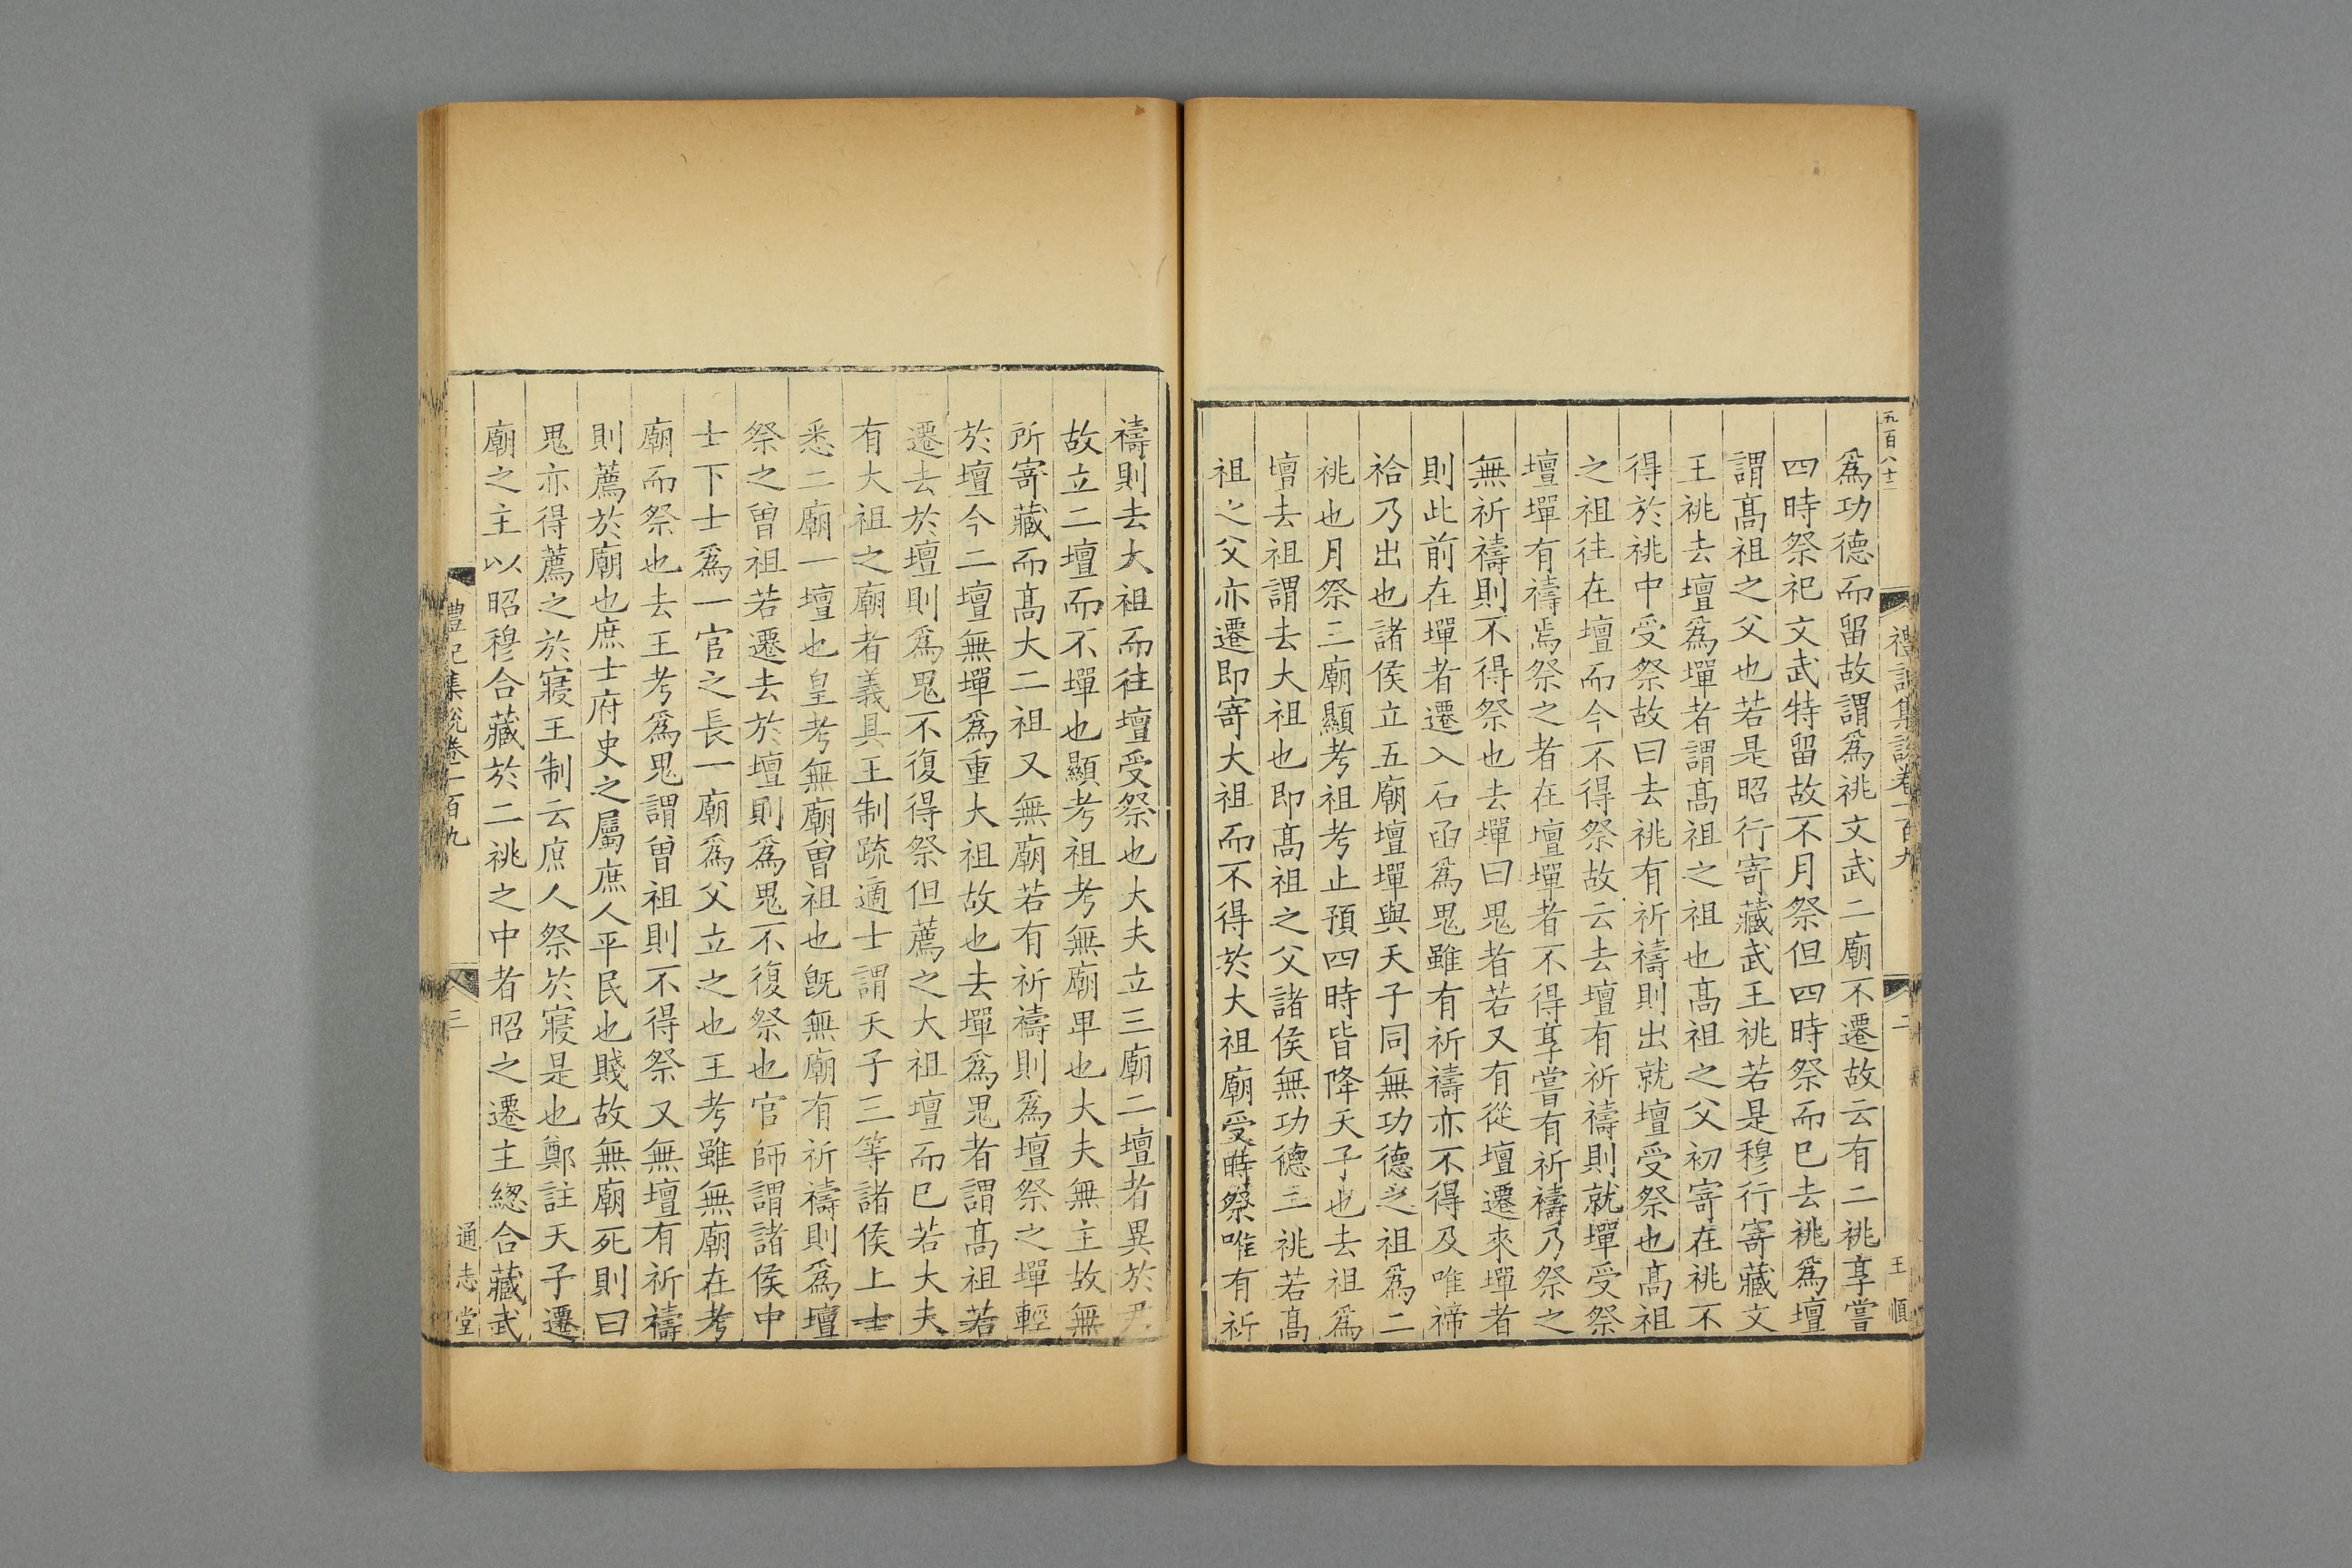 五百八十二
禮記集說卷一百九
二
王順
爲功德而留故謂爲祧文武二廟不遷故云有二祧享嘗
四時祭祀文武特留故不月祭但四時祭而已去祧爲壇
謂髙祖之父也若是昭行寄藏武王祧若是穆行寄藏文
王祧去壇爲墠者謂髙祖之祖也髙祖之父初寄在祧不
得於祧中受祭故曰去祧有祈禱則出就壇受祭也髙祖
之祖往在壇而今不得祭故云去壇有祈禱則就墠受祭
壇墠有禱焉祭之者在壇墠者不得享嘗有祈禱乃祭之
無祈禱則不得祭也去墠曰鬼者若又有從壇遷來墠者
則此前在墠者遷入石函爲鬼雖有祈禱亦不得及唯禘
祫乃出也諸侯立五廟壇墠與天子同無功德之祖爲二
祧也月祭三廟顯考祖考止預四時皆降天子也去祖爲
壇去祖謂去大祖也即髙祖之父諸侯無功德三祧若髙
祖之父亦遷即寄大祖而不得於大祖廟受時祭唯有祈
禱則去大祖而往壇受祭也大夫立三廟二壇者異於君
故立二壇而不墠也顯考祖考無廟畢也大夫無主故無
所寄藏而髙大二祖又無廟若有祈禱則爲壇祭之墠輕
於壇今二壇無墠爲重大祖故也去墠爲鬼者謂髙祖若
遷去於壇則爲鬼不復得祭但薦之大祖壇而已若大夫
有大祖之廟者義具王制疏適士謂天子三等諸侯上士
悉二廟一壇也皇考無廟曾祖也旣無廟有祈禱則爲壇
祭之曾祖若遷去於壇則爲鬼不復祭也官師謂諸侯中
士下士爲一官之長一廟爲父立之也王考雖無廟在考
廟而祭也去王考爲鬼謂曾祖則不得祭又無壇有祈禱
則薦於廟也庶士府史之屬庶人平民也賤故無廟死則曰
鬼亦得薦之於寢王制云庶人祭於寢是也鄭註天子遷
廟之主以昭穆合藏於二祧之中者昭之遷主緫合藏武
禮記集說卷一百九
三
通志堂